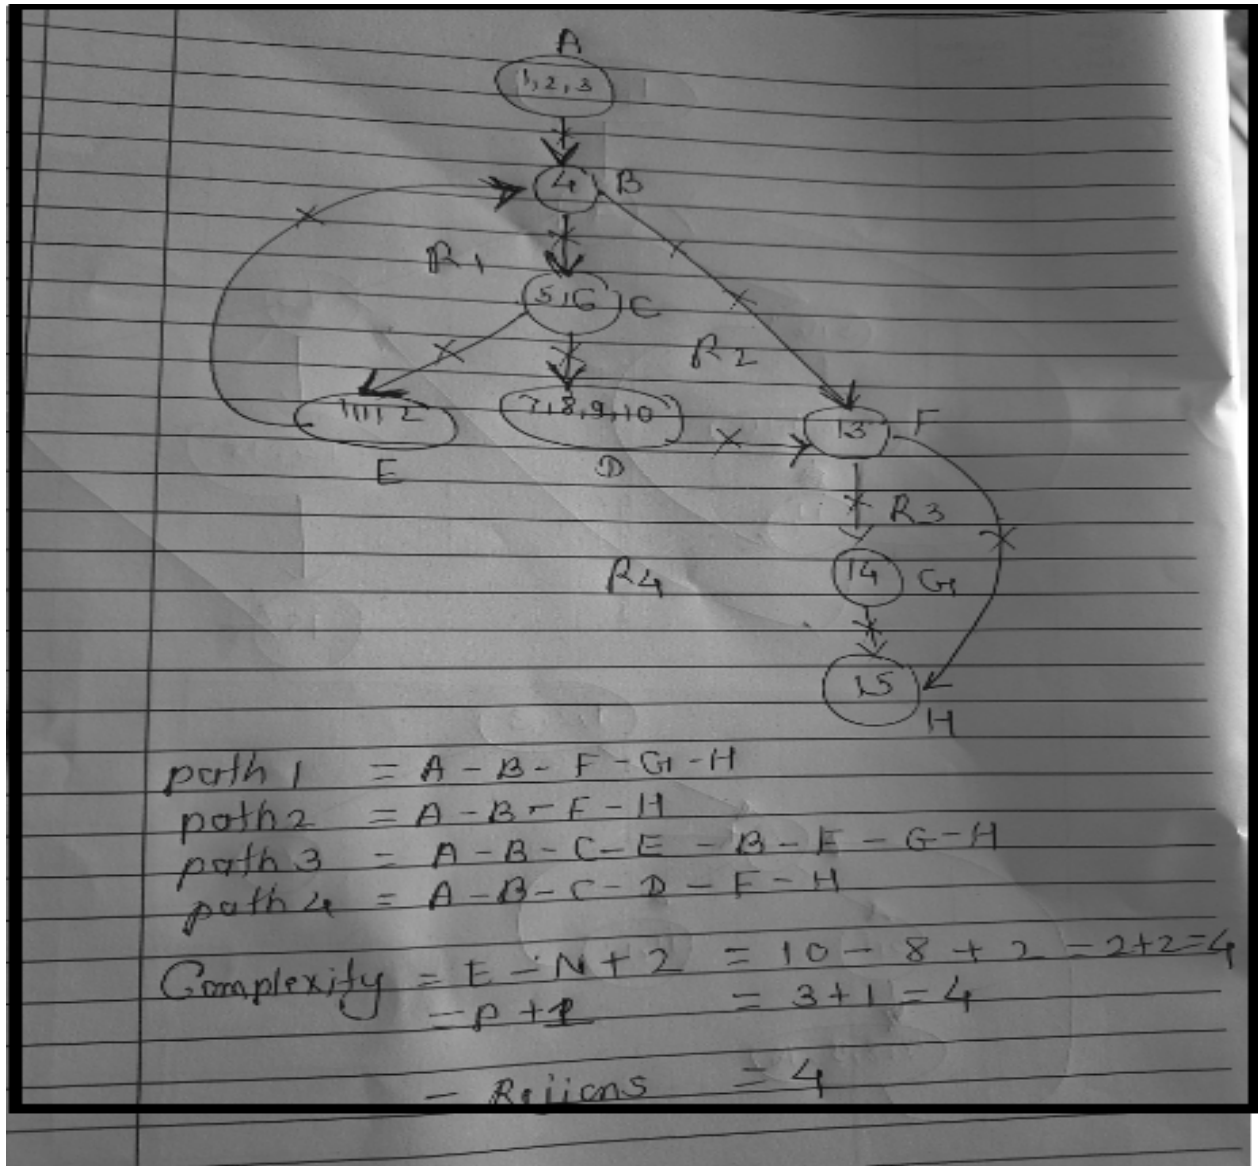 A
1,2,3
4 B
R1
5,6 C
R2
11,12
7,8,9,10
13 F
E
D
R3
R4
14 G
15
H
path 1 = A - B - F - G - H
path 2 = A - B - F - H
path 3 = A - B - C - E - B - F - G - H
path 4 = A - B - C - D - F - H
Complexity = E - N + 2 = 10 - 8 + 2 = 2+2=4
= P + 1 = 3+1 = 4
- Rejions = 4